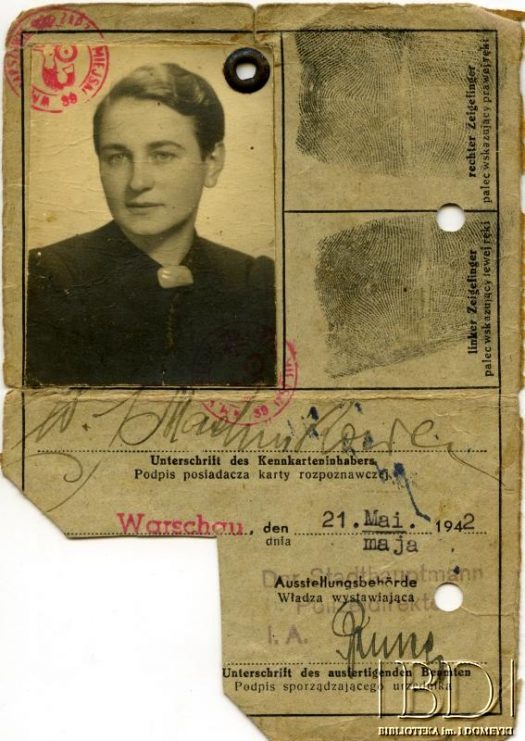 rechter Zeigefinger
palec wskazujący prawej ręki
linker Zeigefinger
palec wskazujący lewej ręki
Unterschrift des Kennkarteninhabers
Podpis posiadacza karty rozpoznawczej
Warschau, den 21. Mai. 1942
dnia maja
Der Stadthauptmann
Ausstellungsbehörde
Władza wystawiająca
I. A.
Unterschrift des ausfertigenden Beamten
Podpis sporządzającego urzędnika
IBD
BIBLIOTEKA im. I DOMEYKI